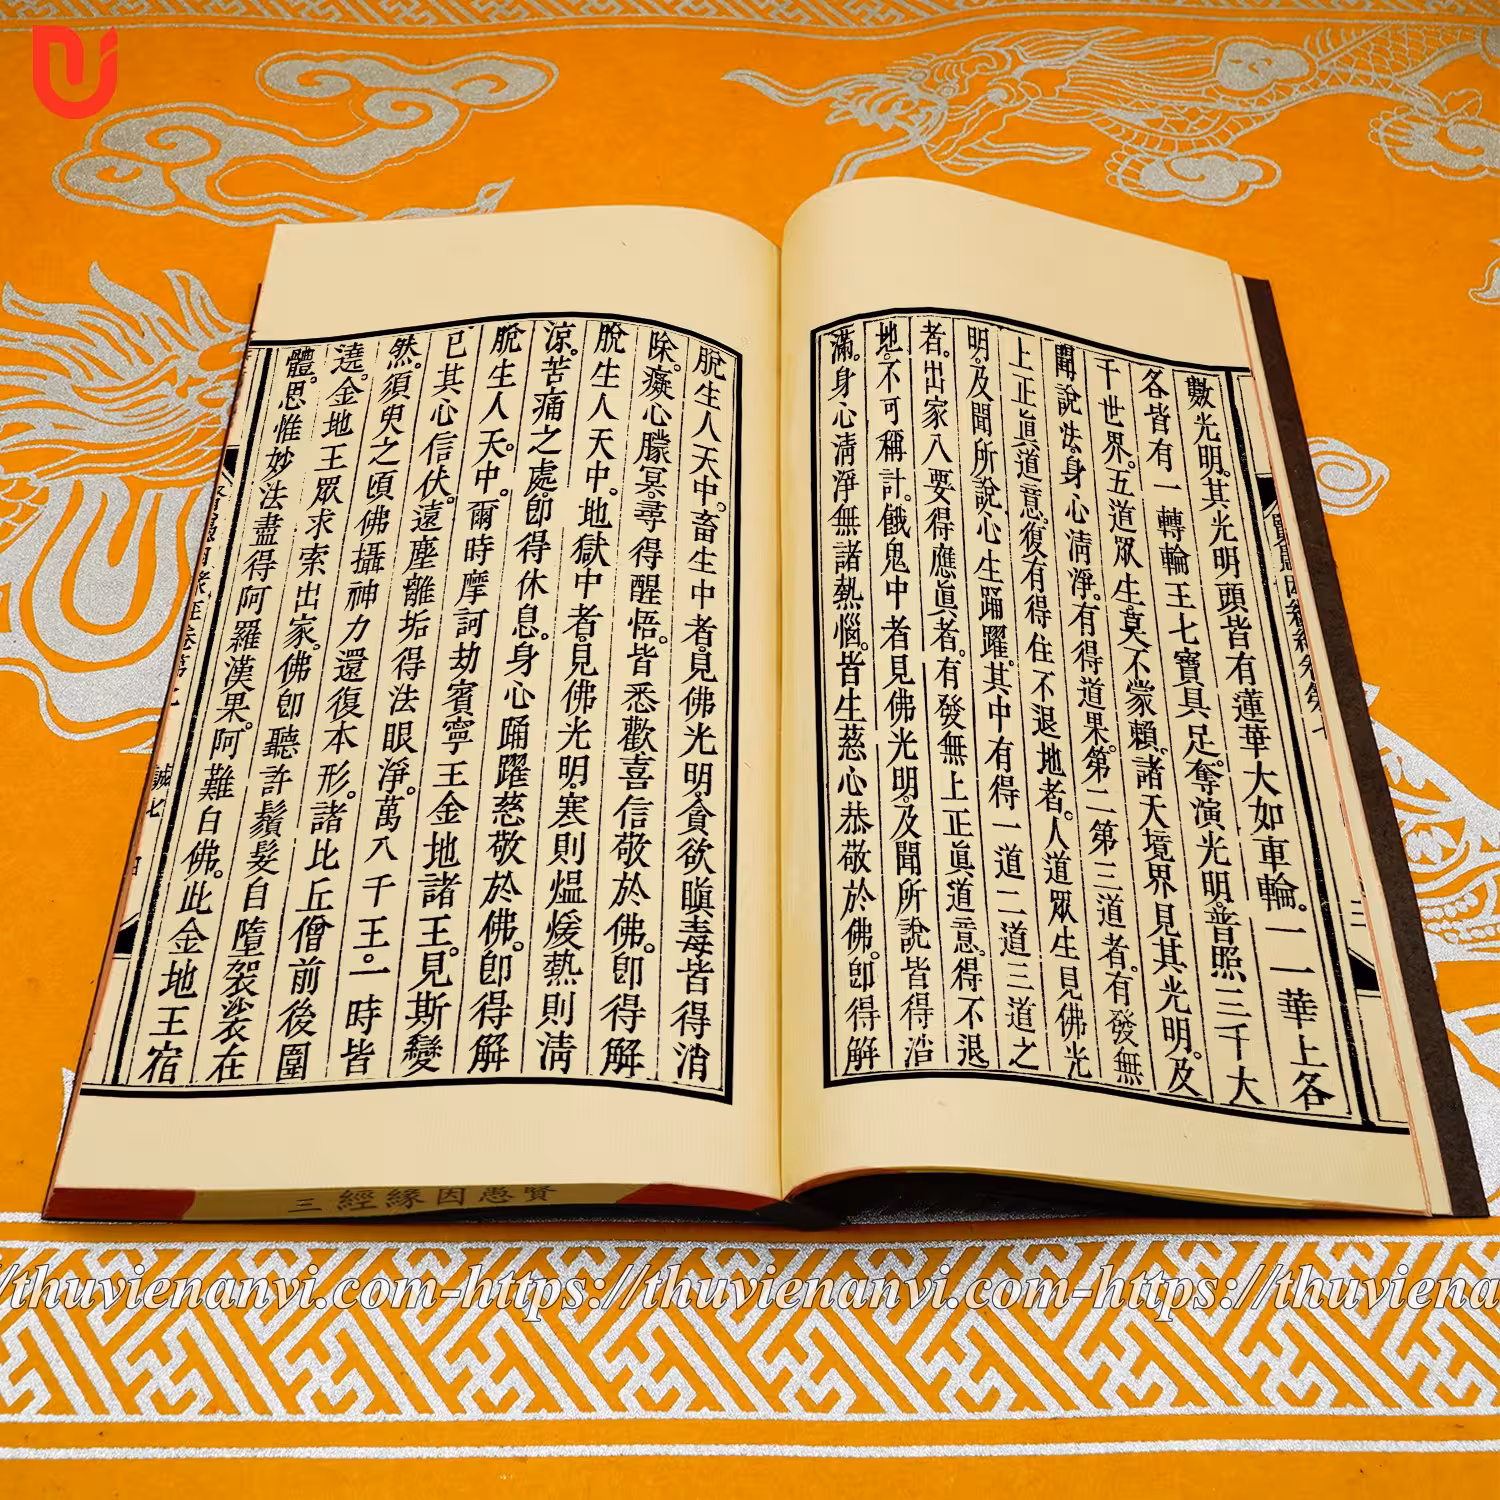 數光明。其光明頭皆有蓮華大如車輪。一一華上各
各皆有一轉輪王七寶具足。奪演光明。普照三千大
千世界。五道眾生。莫不蒙賴。諸天境界見其光明。及
聞說法。身心清淨。有得道果。第二第三道者。有發無
上正真道意。復有得住不退地者。人道眾生見佛光
明。及聞所說。心生踊躍。其中有得一道二道三道之
者。出家入要得應真者。有發無上正真道意。得不退
地。不可稱計。餓鬼中者見佛光明。及聞所說皆得
滿。身心清淨無諸熱惱。皆生慈心恭敬於佛。即得解
脫生人天中。畜生中者。見佛光明。貪欲瞋毒皆得消
除。癡心朦冥。尋得醒悟。皆悉歡喜信敬於佛。即得解
脫生人天中。地獄中者。見佛光明。寒則熅煖熱則清
涼。苦痛之處。即得休息。身心踊躍慈敬於佛。即得解
脫生人天中。爾時摩訶劫賓寧王金地諸王。見斯變
已其心信伏。遠塵離垢得法眼淨。萬八千王。一時皆
然。須臾之頃佛攝神力還復本形。諸比丘僧前後圍
遶。金地王眾求索出家。佛即聽許鬚髮自墮袈裟在
體。思惟妙法盡得阿羅漢果。阿難白佛。此金地王宿
誠七
賢愚因緣經 三
//thuvienanvi.com-https://thuvienanvi.com-https://thuviena